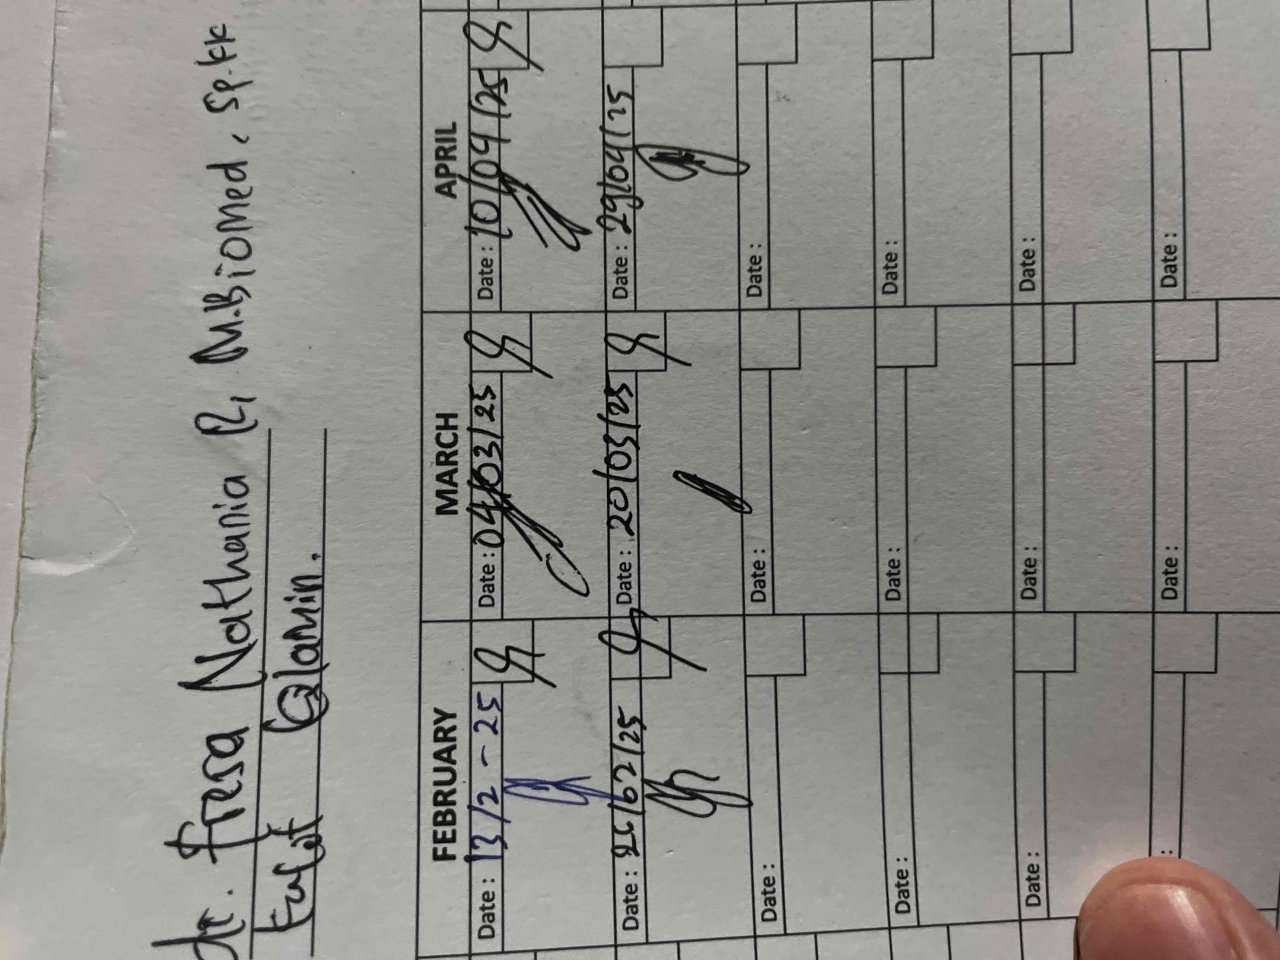 dr. Fresa Nathania R, M.Biomed, Sp.KK
FEBRUARY MARCH APRIL
Date : 13/2 - 25 Date : 04/03/25 Date : 10/04/25
Date : 26/02/25 Date : 20/03/25 Date : 29/04/25
Date : Date : Date :
Date : Date : Date :
Date : Date : Date :
: Date : Date :